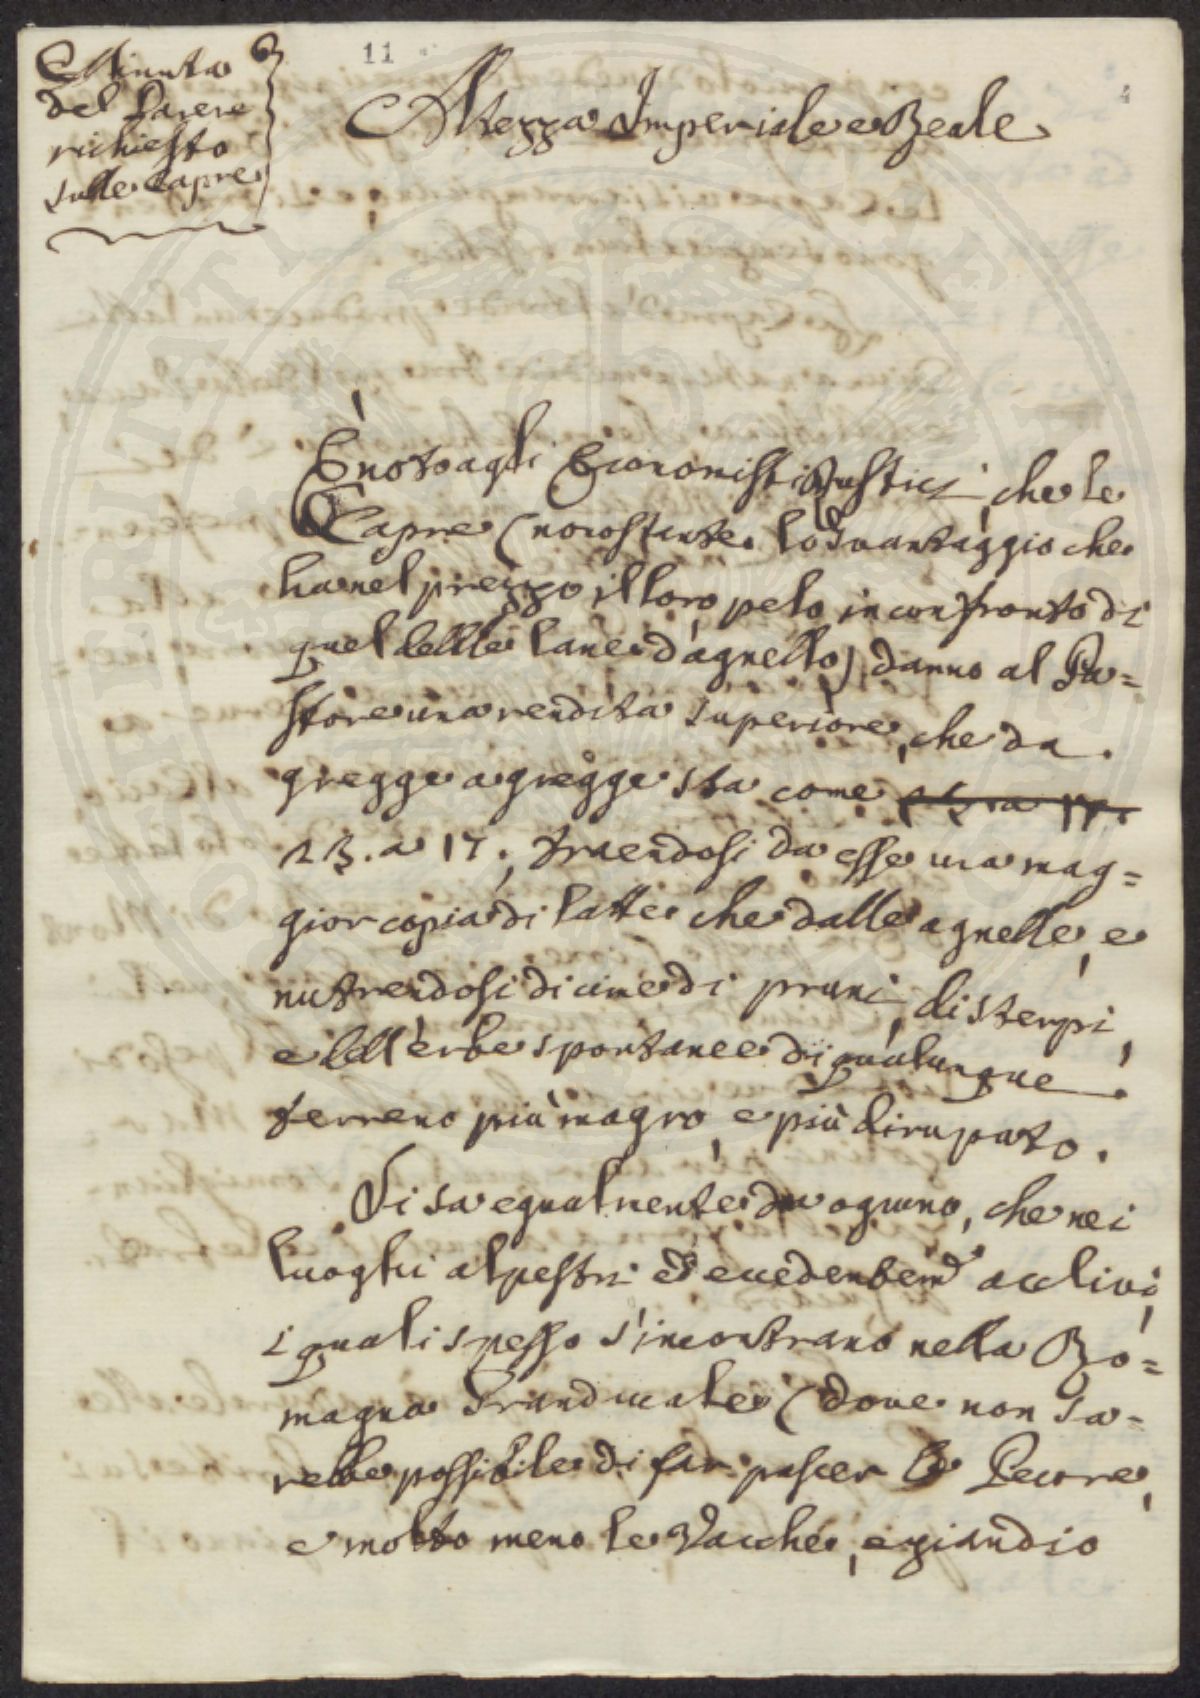 Minuta
del Parere
richiesto
sulle Capre
11
4
Altezza Imperiale e Reale
È noto agli Economisti Rustici, che le
Capre (nonostante lo svantaggio che
ha nel prezzo il loro pelo in confronto di
quel delle lane d'agnello) danno al Pa=
store una rendita superiore, che da
gregge a gregge sta come
23. a 17; traendosi da esse una mag=
gior copia di latte che dalle agnelle, e
nutrendosi di cime di pruni, di sterpi,
e dell'erbe spontanee di qualunque
terreno più magro, e più dirupato.
Si sa egualmente da ognuno, che nei
luoghi alpestri ed eccedentem.e acclivi,
i quali spesso s'incontrano nella Ro=
magna Granducale (dove non sa=
rebbe possibile di far pascer le Pecore,
e molto meno le Vacche, eziandio